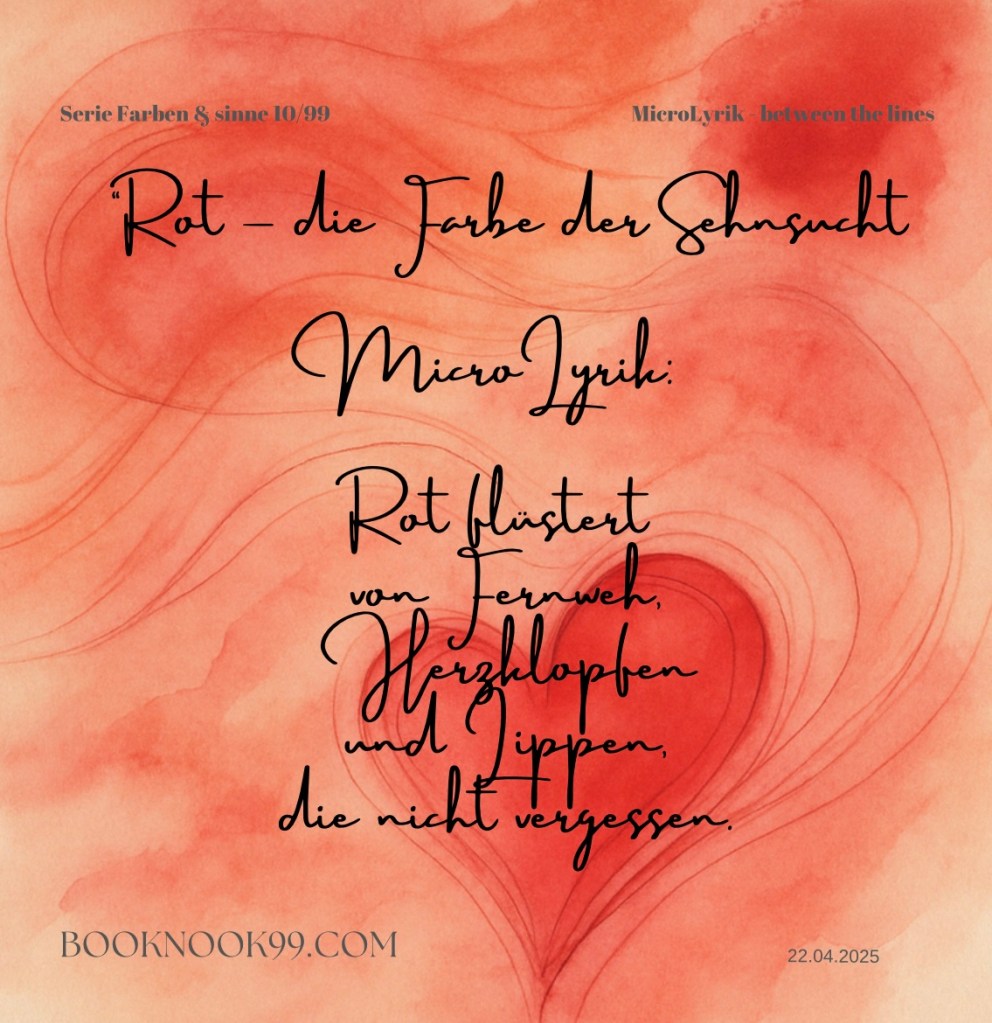 Serie Farben & sinne 10/99
MicroLyrik - between the lines
“Rot – die Farbe der Sehnsucht
MicroLyrik:
Rot flüstert
von Fernweh,
Herzklopfen
und Lippen,
die nicht vergessen.
BOOKNOOK99.COM
22.04.2025